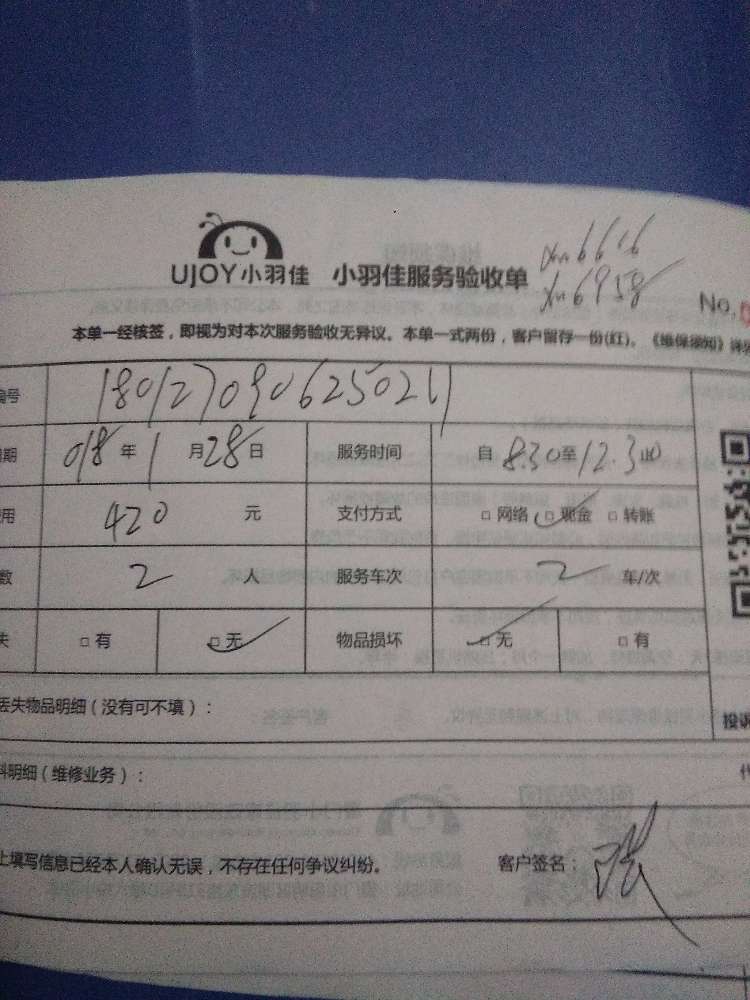 UJOY小羽佳 小羽佳服务验收单
xm6616
xm6958
No.
本单一经核签，即视为对本次服务验收无异议。本单一式两份，客户留存一份(红)。《维保须知》
编号 180127090625021
期 018年1月28日 服务时间 自8.30至12.30
用 420元 支付方式 □网络 □现金 □转账
数 2人 服务车次 2车/次
失 □有 □无 物品损坏 □无 □有
丢失物品明细（没有可不填）：
投诉
料明细（维修业务）：
上填写信息已经本人确认无误，不存在任何争议纠纷。 客户签名：张